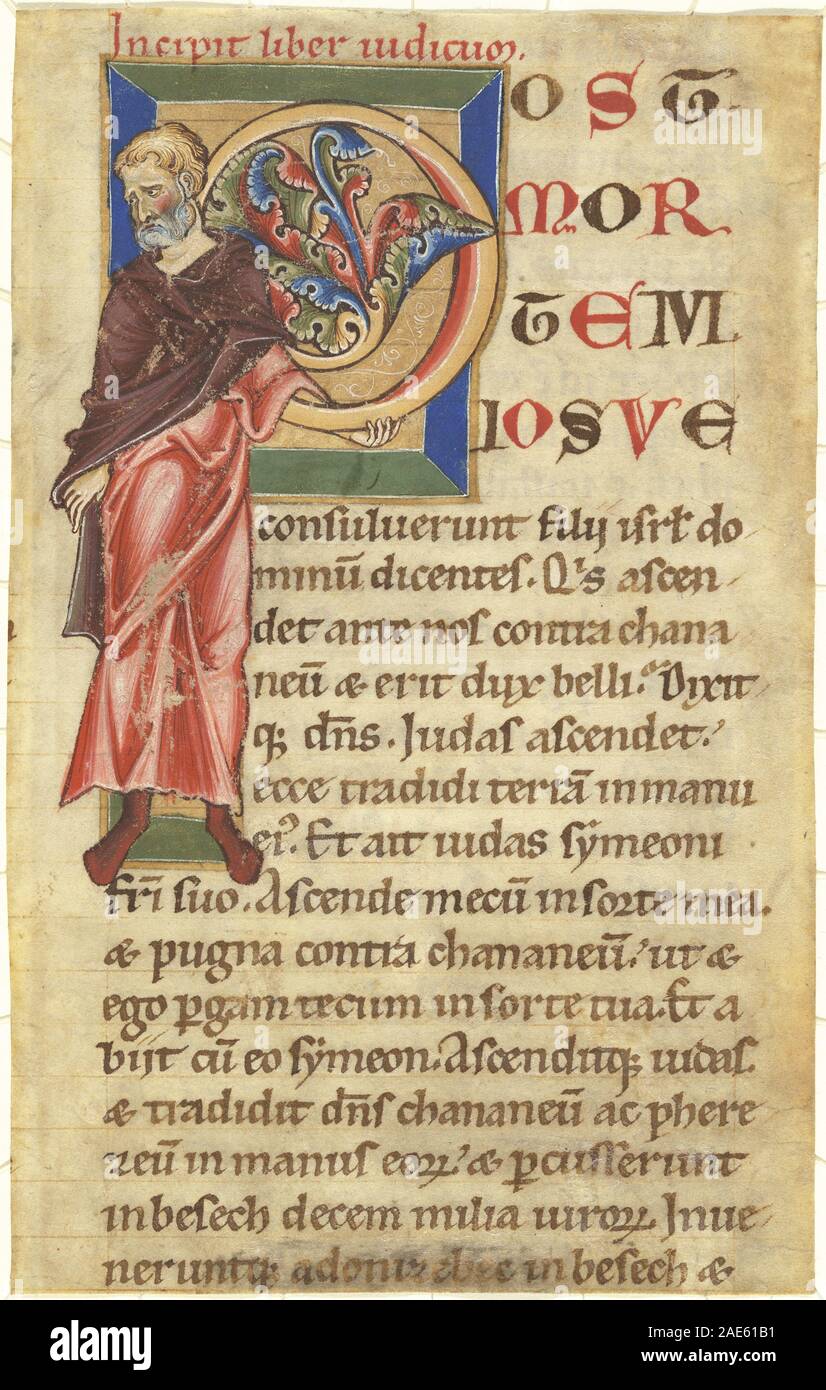 Incipit liber iudicum.
POST
MOR
TEM
IOSVE
consuluerunt filij isrł do
minū dicentes. Qis ascen
det ante nos contra chana
neū & erit dux belli. Dixit
q; dn̄s. Judas ascendet.
ecce tradidi terrā in manu
ei⁹. Et ait iudas sẏmeoni
fr̄i suo. Ascende mecū in sorte mea.
& pugna contra chananeū. ut &
ego ꝑgam tecum in sorte tua. Et a
biit cū eo sẏmeon. Ascenditq; iudas.
& tradidit dn̄s chananeū ac phere
zeū in manus eoꝝ. & ꝑcusserunt
in besech decem milia uiroꝝ. Inue
neruntq; adoni in besech &
alamy
Image ID: 2AE61B1
www.alamy.com